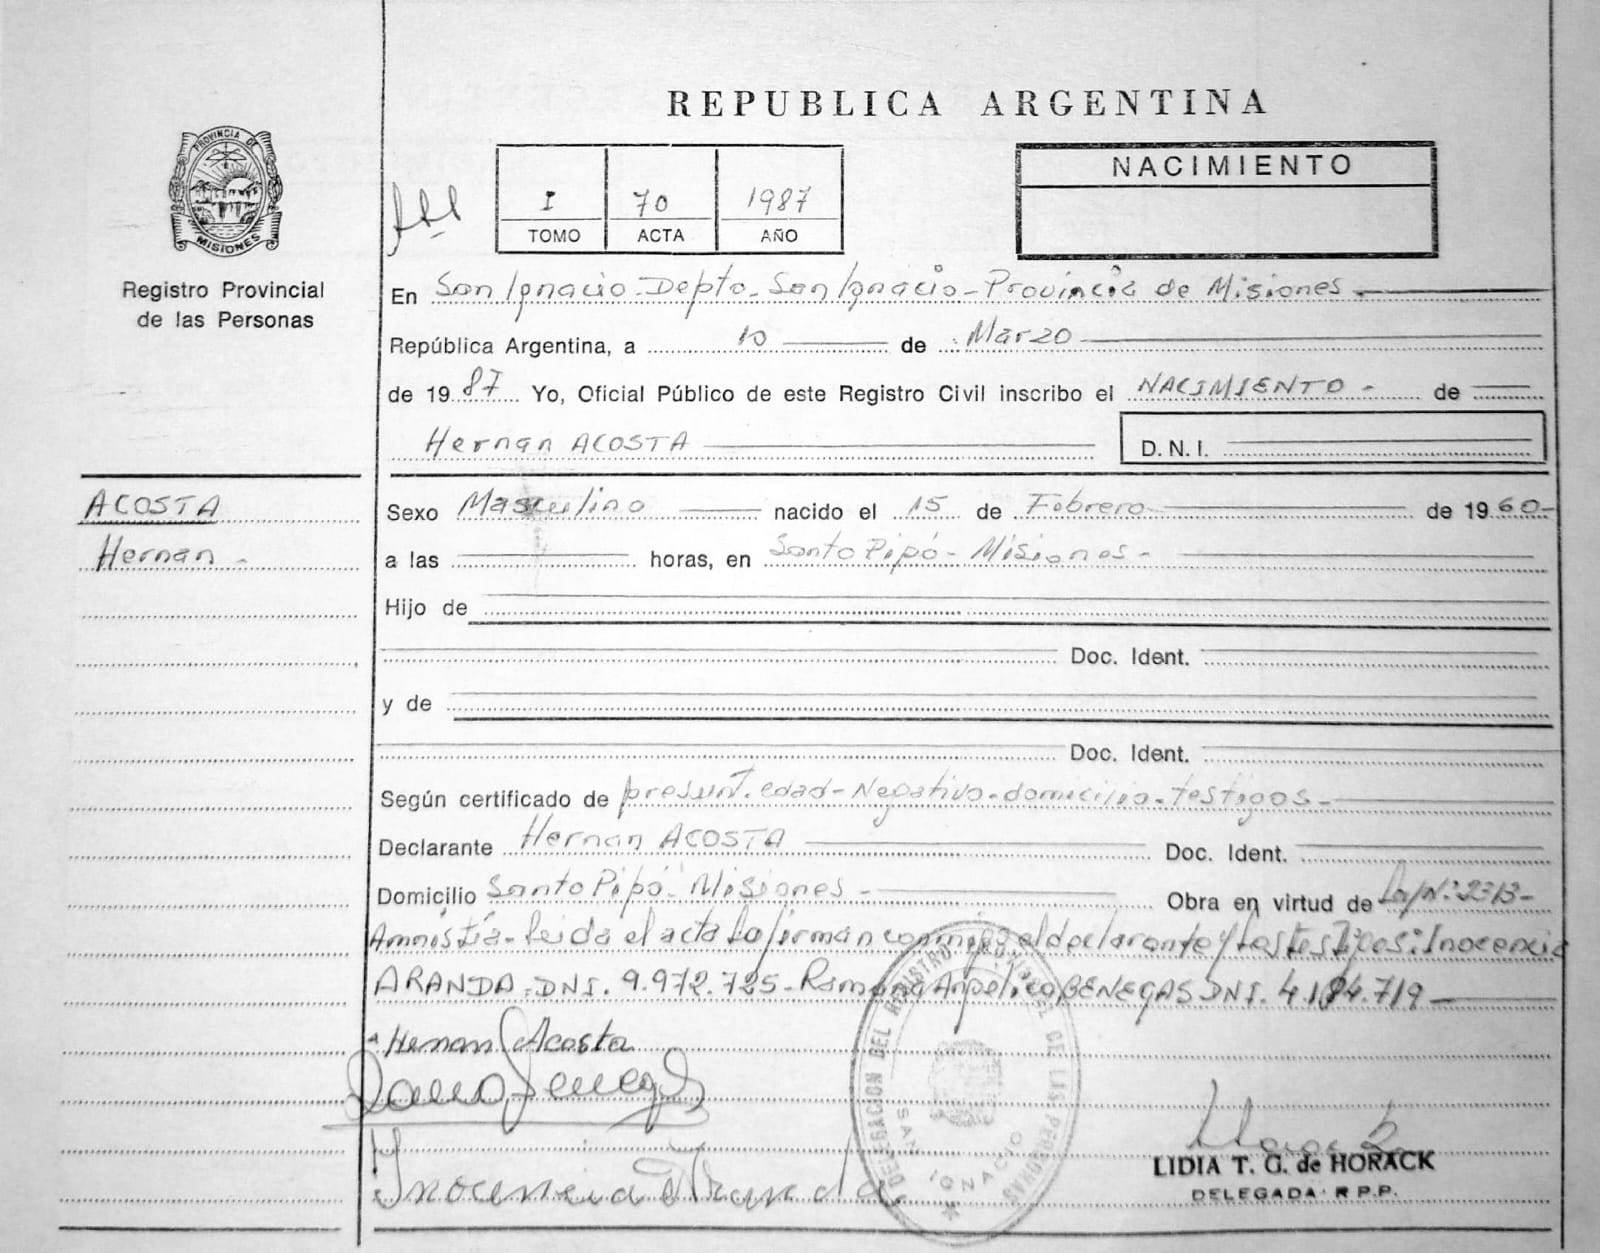 REPUBLICA ARGENTINA
PROVINCIA DE MISIONES
Registro Provincial
de las Personas
I 70 1987
TOMO ACTA AÑO
NACIMIENTO
En San Ignacio-Depto-San Ignacio-Provincia de Misiones-
República Argentina, a 10 de Marzo
de 1987 Yo, Oficial Público de este Registro Civil inscribo el NACIMIENTO - de
Hernan ACOSTA D.N.I.
ACOSTA
Hernan -
Sexo Masculino nacido el 15 de Febrero de 1960-
a las horas, en Santo Pipó- Misiones-
Hijo de
Doc. Ident.
y de
Doc. Ident.
Según certificado de presunt. edad-Negativo-domicilio-testigos-
Declarante Hernan ACOSTA Doc. Ident.
Domicilio Santo Pipó-Misiones- Obra en virtud de Ley N: 2313-
Amnistía-Leida el acta la firman conmigo el declarante y los testigos: Inocencia
ARANDA-DNI. 9.972.725-Ramona Angelica BENEGAS DNI. 4.184.719-
Hernan Acosta
Inocencia Aranda
DELEGACION DEL REGISTRO PROVINCIAL DE LAS PERSONAS
SAN IGNACIO
LIDIA T. G. de HORACK
DELEGADA R.P.P.